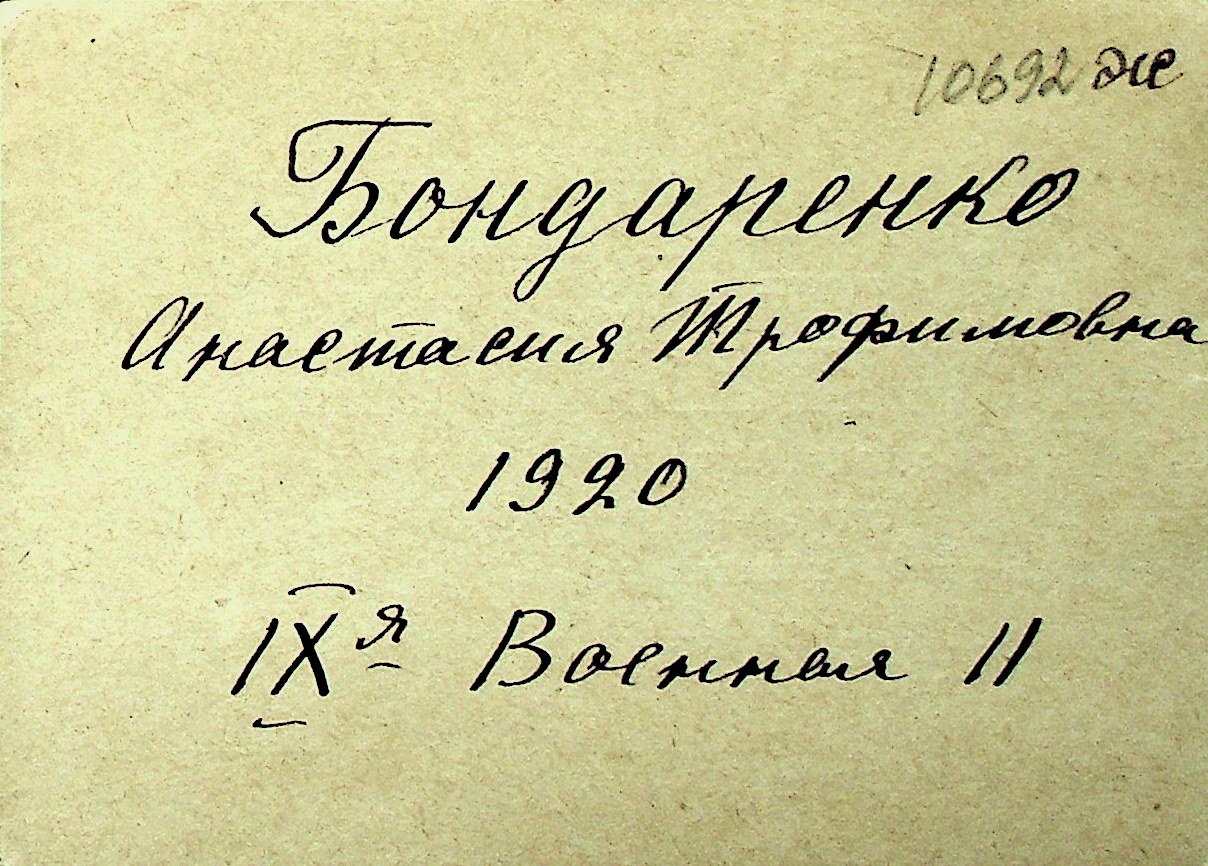 10692 ж
Бондаренко
Анастасия Трофимовна
1920
IX я Военная 11